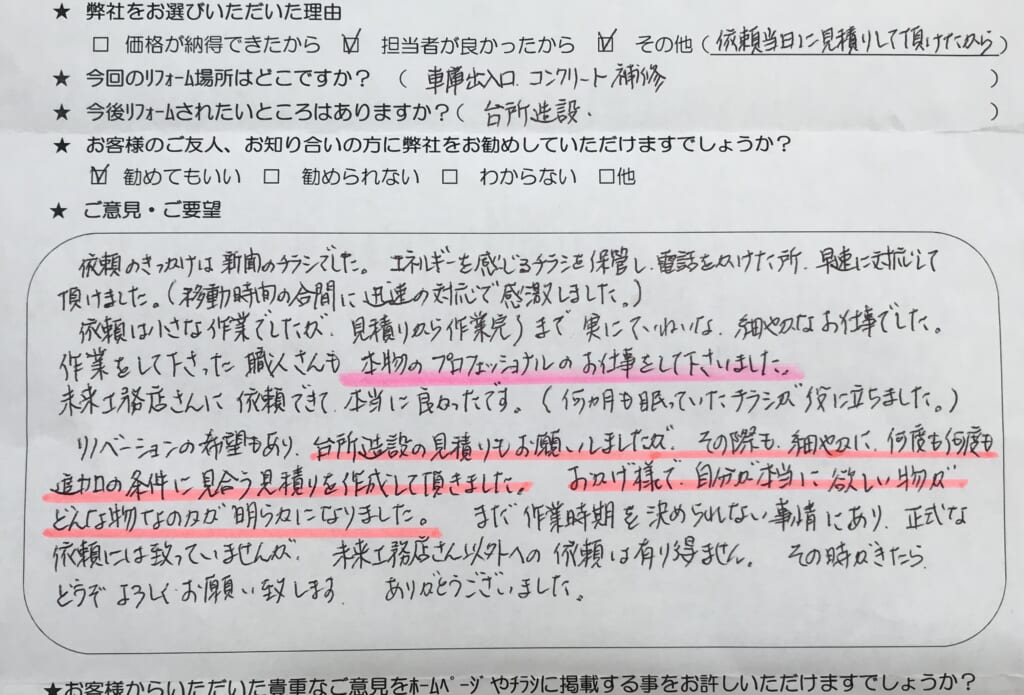 ★ 弊社をお選びいただいた理由
□ 価格が納得できたから ☑ 担当者が良かったから ☑ その他(依頼当日に見積りして頂けたから)
★ 今回のリフォーム場所はどこですか? ( 車庫出入口.コンクリート補修 )
★ 今後リフォームされたいところはありますか?( 台所造設. )
★ お客様のご友人、お知り合いの方に弊社をお勧めしていただけますでしょうか?
☑ 勧めてもいい □ 勧められない □ わからない □他
★ ご意見・ご要望
依頼のきっかけは新聞のチラシでした。エネルギーを感じるチラシを保管し、電話をかけた所、早速に対応して
頂けました。(移動時間の合間に迅速の対応で感激しました。)
依頼は小さな作業でしたが、見積りから作業完了まで実にていねいな、細やかなお仕事でした。
作業をして下さった職人さんも、本物のプロフェッショナルのお仕事をして下さいました。
未来工務店さんに依頼できて、本当に良かったです。(何ヵ月も眠っていたチラシが役に立ちました。)
リノベーションの希望もあり、台所造設の見積りもお願いしましたが、その際も、細やかに、何度も何度も
追加の条件に見合う見積りを作成して頂きました。おかげ様で、自分が本当に欲しい物が
どんな物なのかが明らかになりました。まだ作業時期を決められない事情にあり、正式な
依頼には致っていませんが、未来工務店さん以外への依頼は有り得ません。その時がきたら、
どうぞよろしくお願い致します。ありがとうございました。
★お客様からいただいた貴重なご意見をホームページやチラシに掲載する事をお許しいただけますでしょうか?